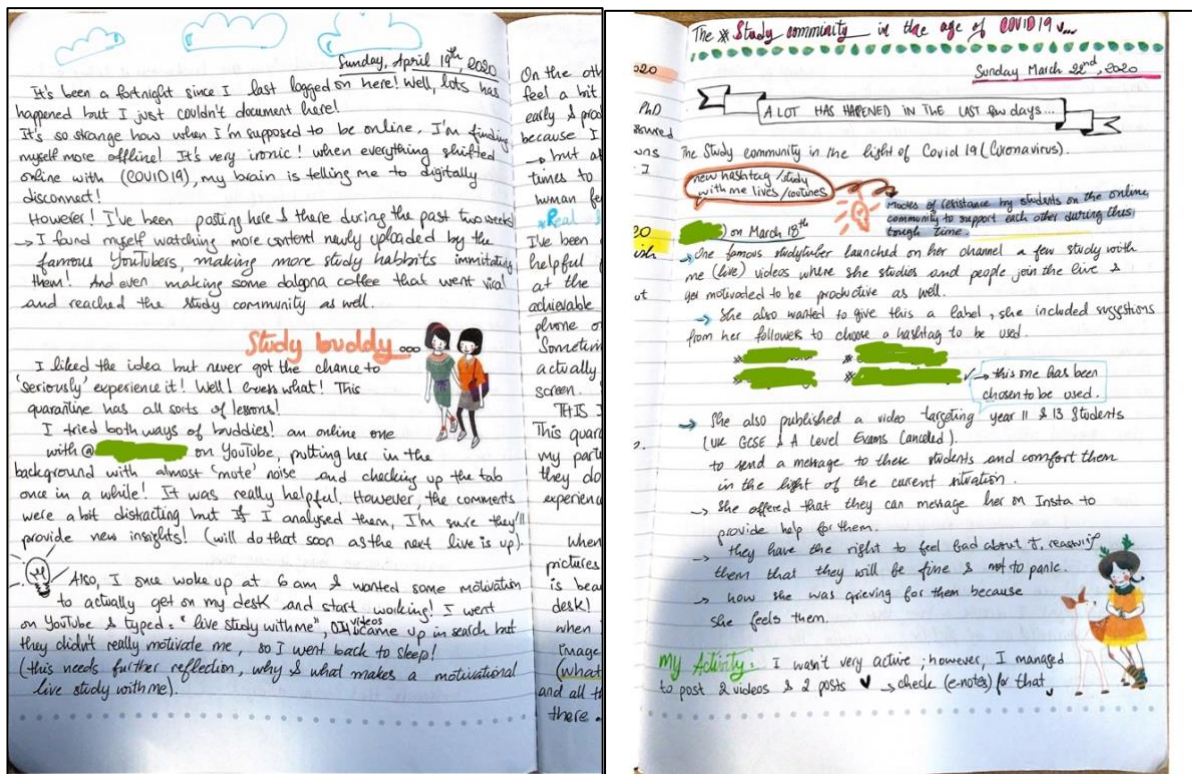 Sunday, April 19th 2020
It's been a fortnight since I last logged on here! Well, lots has
happened but I just couldn't document here!
It's so strange how when I'm supposed to be online, I'm finding
myself more offline! It's very ironic! when everything shifted
online with (COVID19), my brain is telling me to digitally
disconnect!
However! I've been posting here & there during the past two weeks
→ I found myself watching more content newly uploaded by the
famous YouTubers, making more study habbits immitating
them! And even making some dalgona coffee that went viral
and reached the study community as well.
Study buddy...
I liked the idea but never got the chance to
'seriously' experience it! Well! Guess what! This
quarantine has all sorts of lessons!
I tried both ways of buddies! an online one
with @ on YouTube, putting her in the
background with almost 'mute' noise and checking up the tab
once in a while! It was really helpful. However, the comments
were a bit distracting but if I analysed them, I'm sure they'll
provide new insights! (will do that soon as the next live is up).
Also, I once woke up at 6 am & wanted some motivation
to actually get on my desk and start working! I went
on YouTube & typed: "live study with me", videos came up in search but
they didn't really motivate me, so I went back to sleep!
(this needs further reflection, why & what makes a motivational
live study with me).
On the oth
feel a bit
early & prod
because I
→ but at
times to
human fe
*Real
I've been
helpful
at the
achievable
phone or
Sometim
actually
screen.
THIS I
This quar
my part
they do
experienc
When
pictures
is bea
desk!
when
image
(what
and all th
there.
The #Study comminity in the age of COVID19...
Sunday March 22nd, 2020
A LOT HAS HAPPENED IN THE LAST few days...
The Study community in the light of Covid 19 (Coronavirus).
new hashtag/study
with me lives/routines
Modes of resistance by students on the online
community to support each other during this
tough time.
) on March 18th
→ One famous studytuber launched on her channel a few study with
me (live) videos where she studies and people join the live &
get motivated to be productive as well.
→ She also wanted to give this a label, she included suggestions
from her follower to choose a hashtag to be used.
# #
# # ✓ → this one has been
chosen to be used.
→ She also published a video targeting year 11 & 13 Students
(UK GCSE & A Level Exams Canceled).
to send a message to these students and comfort them
in the light of the current situation.
→ She offered that they can message her on Insta to
provide help for them.
→ they have the right to feel bad about it, reassuring
them that they will be fine & not to panic.
→ how she was grieving for them because
she feels them.
My Activity: I wasn't very active; however, I managed
to post 2 videos & 2 posts → check (e-notes) for that
020
PhD
I
20
ish
ut